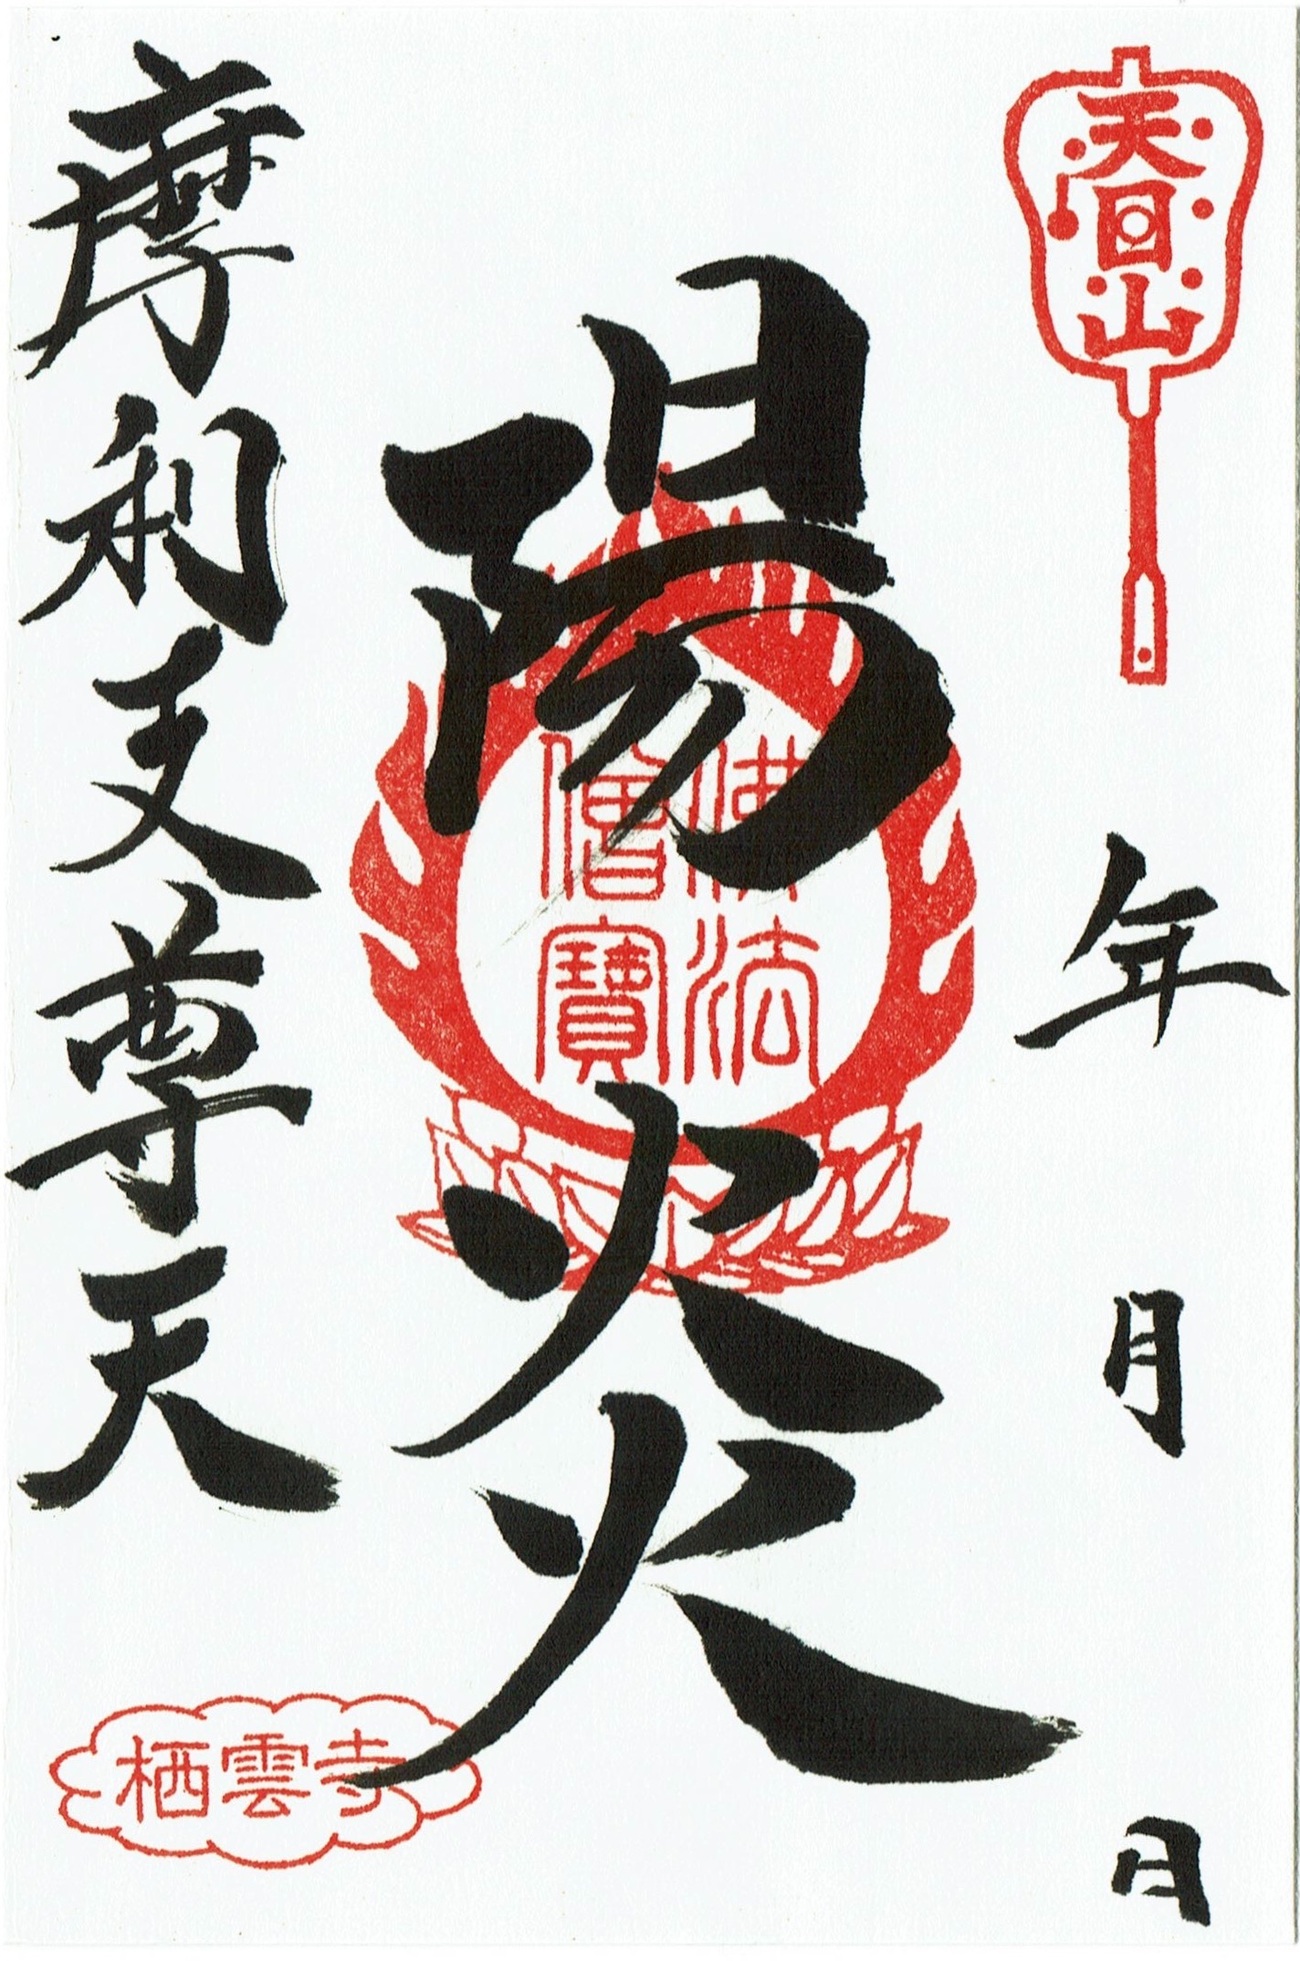 天目山
年 月 日
陽炎
佛法
僧寶
摩利支尊天
栖雲寺